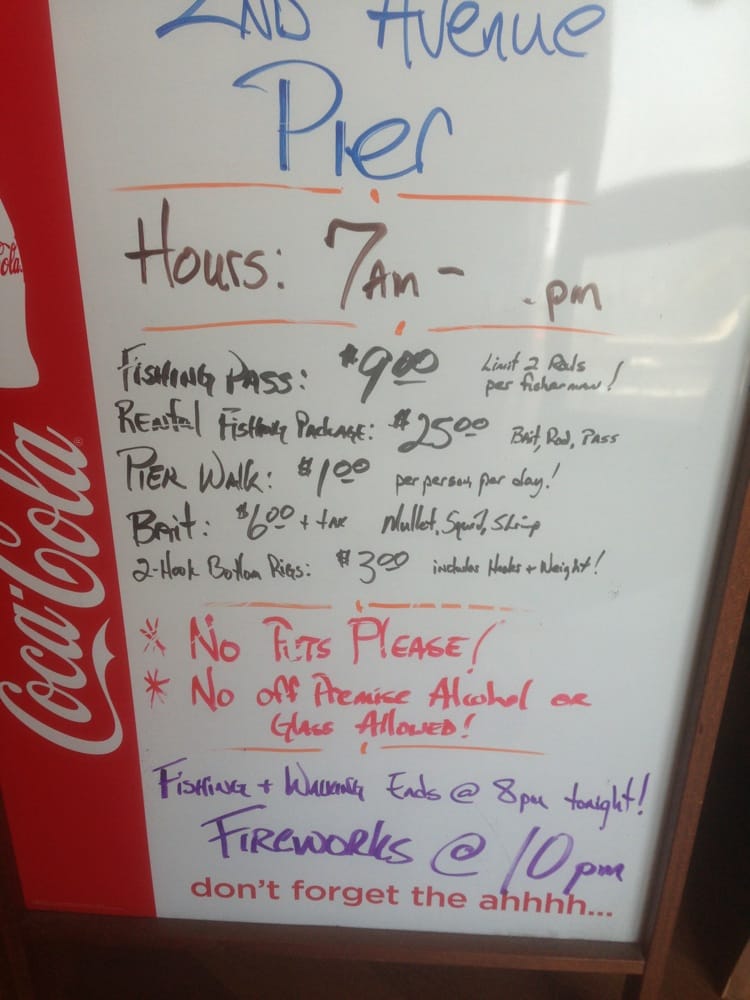 2ND Avenue
Pier
Hours: 7AM - .pm
FISHING PASS: $9.00 Limit 2 Rods
per fisherman!
Rental Fishing Package: $25.00 Bait, Rod, Pass
PIER WALK: $1.00 per person, per day!
Bait: $6.00 + tax Mullet, Squid, Shrimp
2-Hook Bottom Rigs: $3.00 includes Hooks + Weight!
* No Pets Please!
* No off Premise Alcohol or
Glass Allowed!
Fishing + Walking Ends @ 8pm tonight!
FIREWORKS @ 10pm
don't forget the ahhhh...
Coca-Cola
Cola